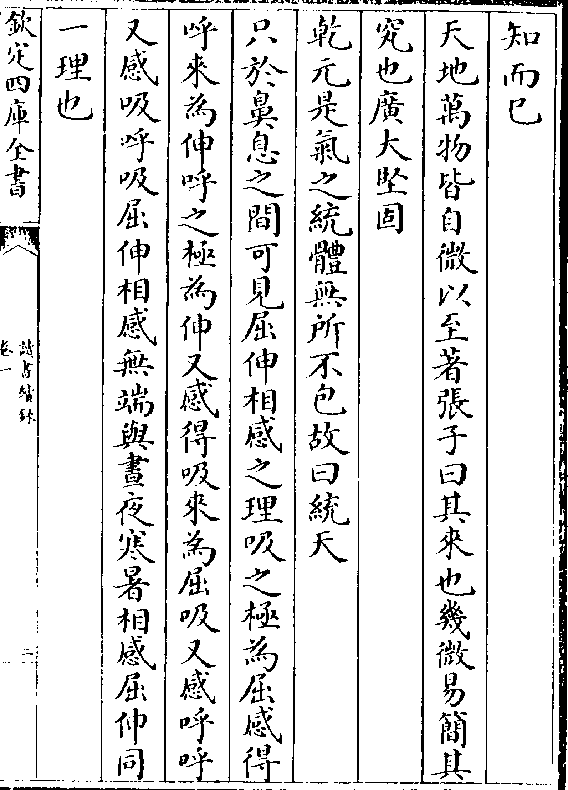 知而已
天地萬物皆自微以至著張子曰其來也幾微易簡其
究也廣大堅固
乾元是氣之統體無所不包故曰統天
只於鼻息之間可見屈伸相感之理吸之極為屈感得
呼來為伸呼之極為伸又感得吸來為屈吸又感呼呼
又感吸呼吸屈伸相感無端與晝夜寒暑相感屈伸同
一理也
欽定四庫全書
讀書續錄
卷一
二